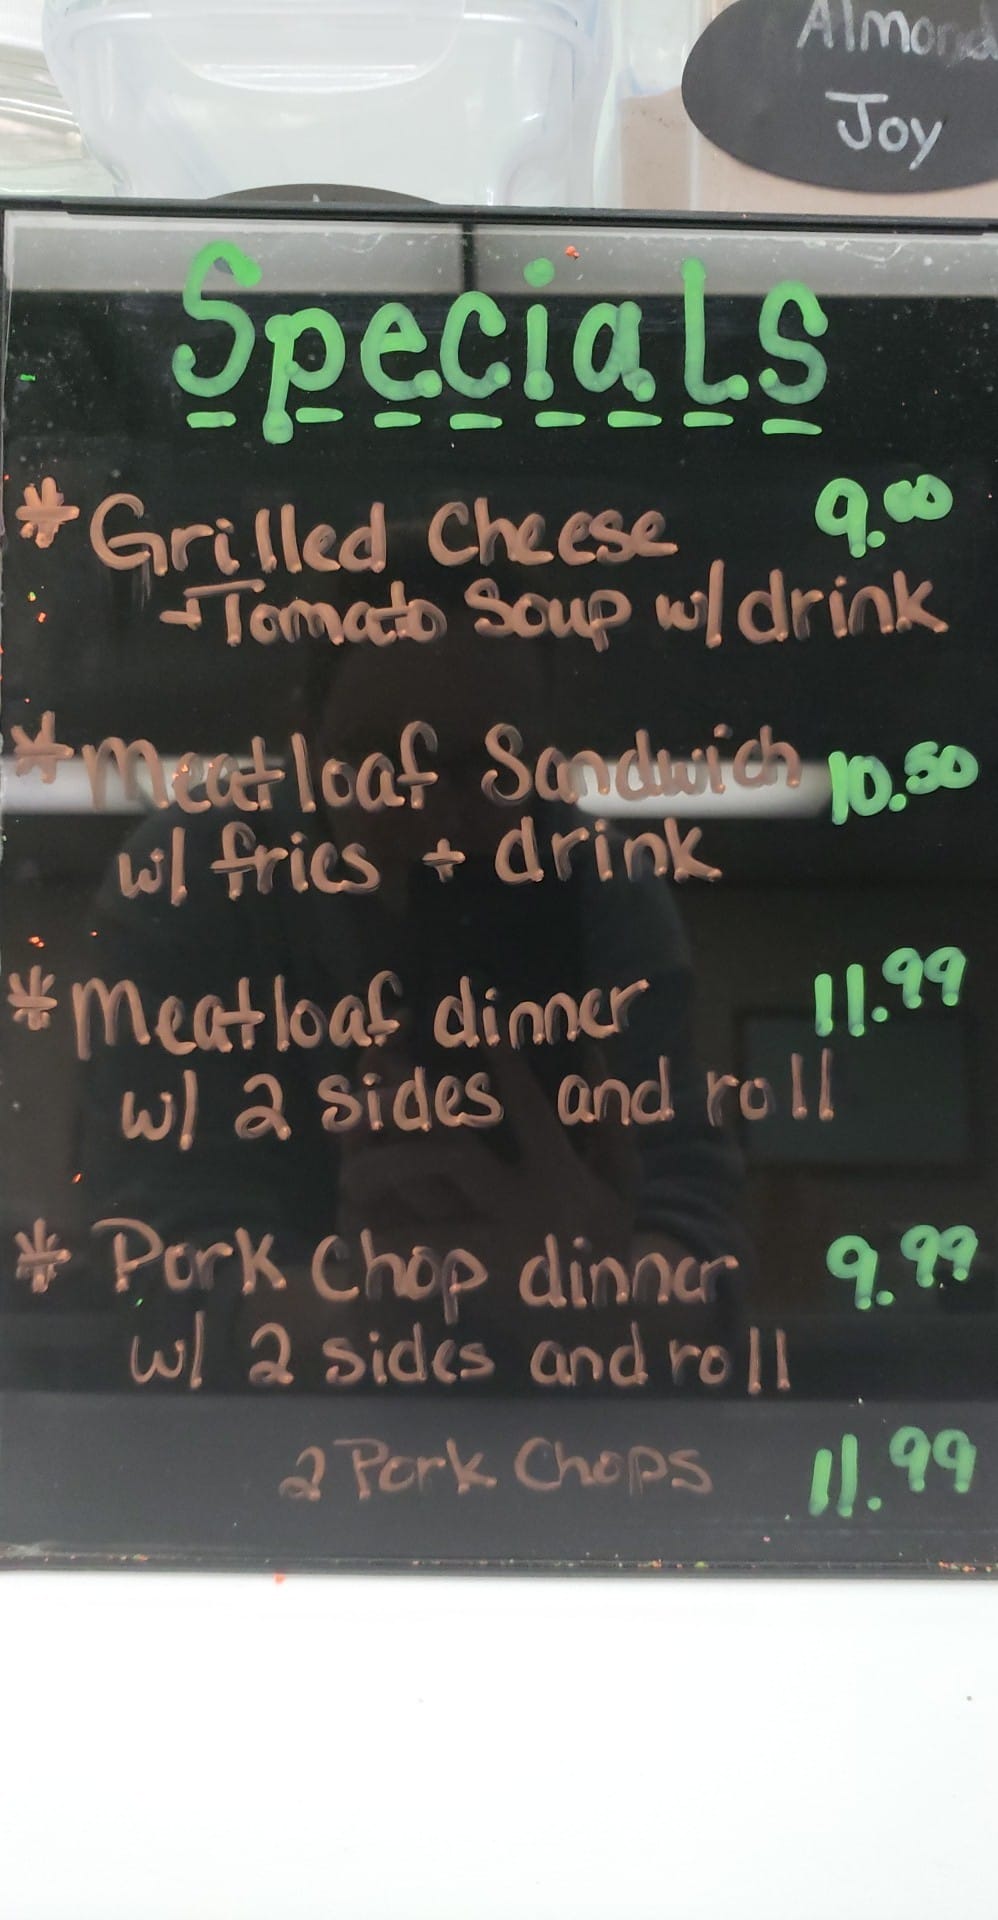 Almond
Joy
Specials
* Grilled Cheese 9.00
+ Tomato Soup w/ drink
* Meatloaf Sandwich 10.50
w/ fries + drink
* Meatloaf dinner 11.99
w/ 2 sides and roll
* Pork Chop dinner 9.99
w/ 2 sides and roll
2 Pork Chops 11.99